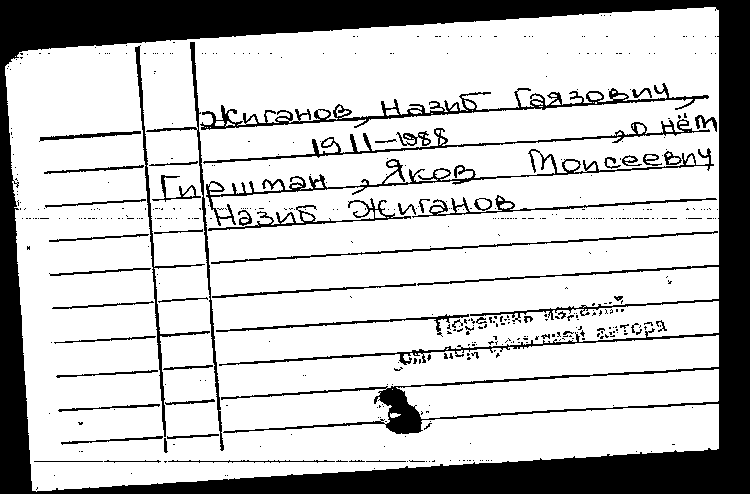 Жиганов, Назиб Гаязович,
1911-1988 , о нём
Гиршман, Яков Моисеевич
Назиб Жиганов.
Перечень изданий
см. под фамилией автора